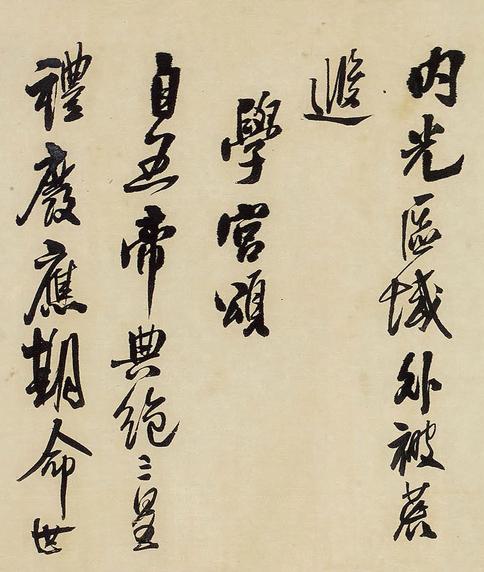 內光區域外被荒
遐
學宮頌
自五帝典絕三皇
禮廢應期命世